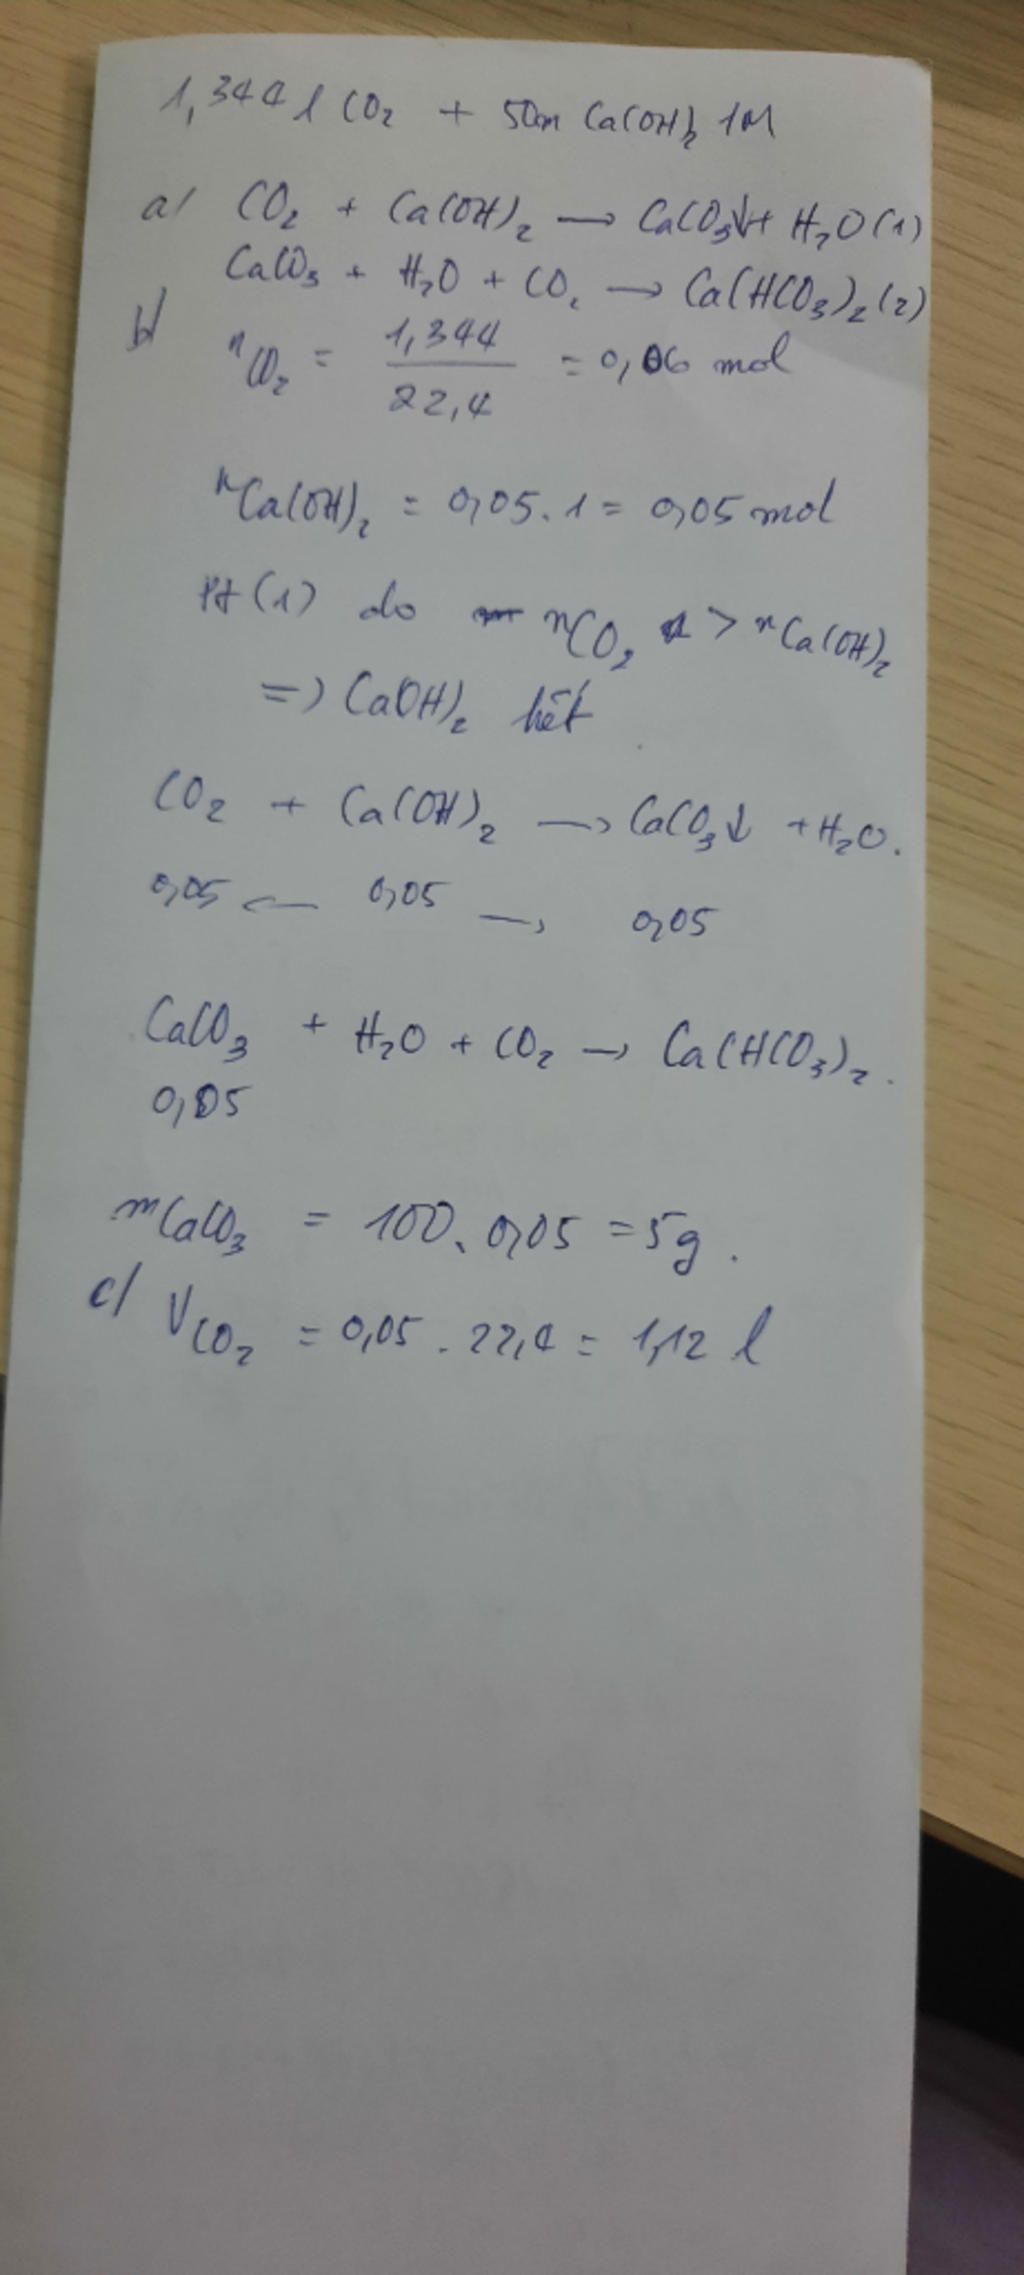 1,344 l CO₂ + 50m Ca(OH)₂ 1M
a/ CO₂ + Ca(OH)₂ → CaCO₃↓ + H₂O (1)
CaCO₃ + H₂O + CO₂ → Ca(HCO₃)₂ (2)
b/ nCO₂ = 1,344 / 22,4 = 0,06 mol
nCa(OH)₂ = 0,05 . 1 = 0,05 mol
Pt (1) do nCO₂ > nCa(OH)₂
=> CaOH)₂ hết
CO₂ + Ca(OH)₂ → CaCO₃↓ + H₂O.
0,05 ← 0,05 → 0,05
CaCO₃ + H₂O + CO₂ → Ca(HCO₃)₂.
0,05
mCaCO₃ = 100 . 0,05 = 5g.
c/ VCO₂ = 0,05 . 22,4 = 1,12 l